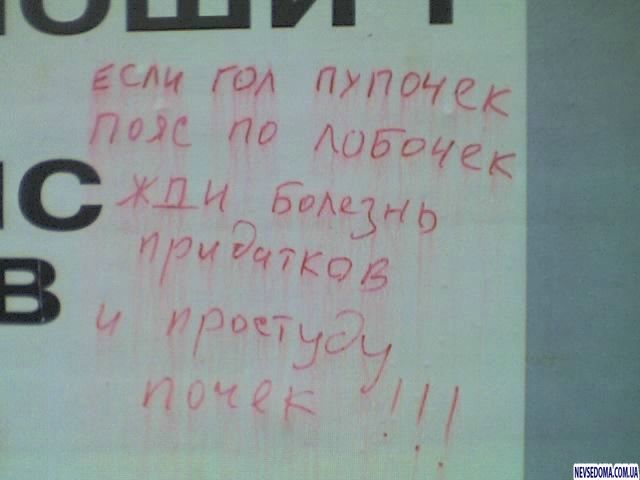 ЕСЛИ ГОЛ ПУПОЧЕК
ПОЯС ПО ЛОБОЧЕК
ЖДИ БОЛЕЗНЬ
ПРИДАТКОВ
И ПРОСТУДУ
ПОЧЕК !!!
NEVSEDOMA.COM.UA